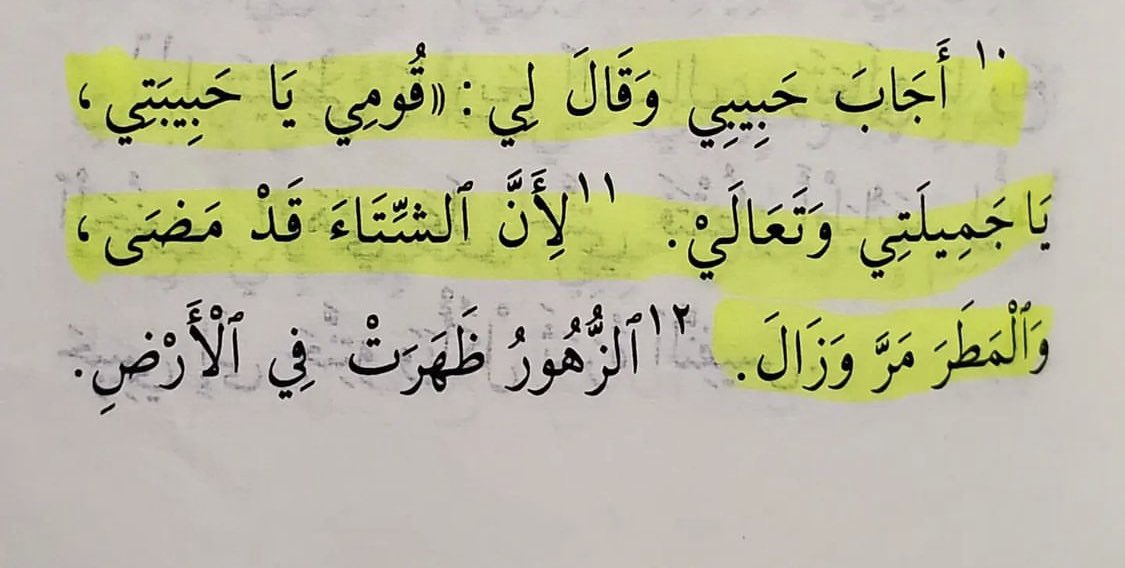 ١٠ أَجَابَ حَبِيبِي وَقَالَ لِي: «قُومِي يَا حَبِيبَتِي،
يَا جَمِيلَتِي وَتَعَالَيْ. ١١ لِأَنَّ ٱلشِّتَاءَ قَدْ مَضَى،
وَٱلْمَطَرَ مَرَّ وَزَالَ. ١٢ ٱلزُّهُورُ ظَهَرَتْ فِي ٱلْأَرْضِ.